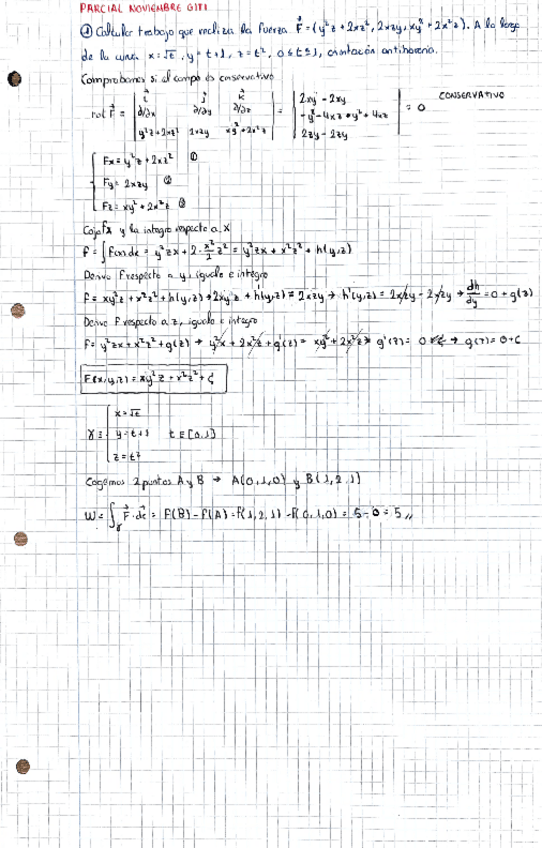 PARCIAL NOVIEMBRE GITI
① Calcular trabajo que realiza la fuerza F⃗=(y²z+2xz², 2xzy, xy²+2x²z). A lo largo
de la curva x=√t, y=t+1, z=t², 0≤t≤1, orientación antihoraria.
Comprobamos si el campo es conservativo
rot F⃗ = | i⃗ j⃗ k⃗ | = | 2xy - 2xy | = 0 CONSERVATIVO
| ∂/∂x ∂/∂y ∂/∂z | | -y²-4xz+y²+4xz |
| y²z+2xz² 2xzy xy²+2x²z | | 2zy - 2zy |
Fx = y²z+2xz² ①
Fy = 2xzy ②
Fz = xy²+2x²z ③
Cojo fx y la integro respecto a x
f = ∫ F(x)dx = y²zx + 2·x²/2 z² = y²zx + x²z² + h(y,z)
Derivo F respecto a y, igualo e integro
f = xy²z + x²z² + h(y,z) → 2xyz + h'(y,z) = 2xzy → h'(y,z) = 2xzy - 2xzy → dh/dy = 0 + g(z)
Derivo F respecto a z, igualo e integro
F = y²zx + x²z² + g(z) → y²x + 2x²z + g'(z) = xy² + 2x²z → g'(z) = 0 → g(z) = 0+C
F(x,y,z) = xy²z + x²z² + C
γ ≡ { x=√t
y=t+1 t∈[0,1]
z=t²
Cogemos 2 puntos A y B → A(0,1,0) y B(1,2,1)
W = ∫γ F⃗·dr⃗ = F(B) - F(A) = F(1,2,1) - F(0,1,0) = 5-0 = 5 //